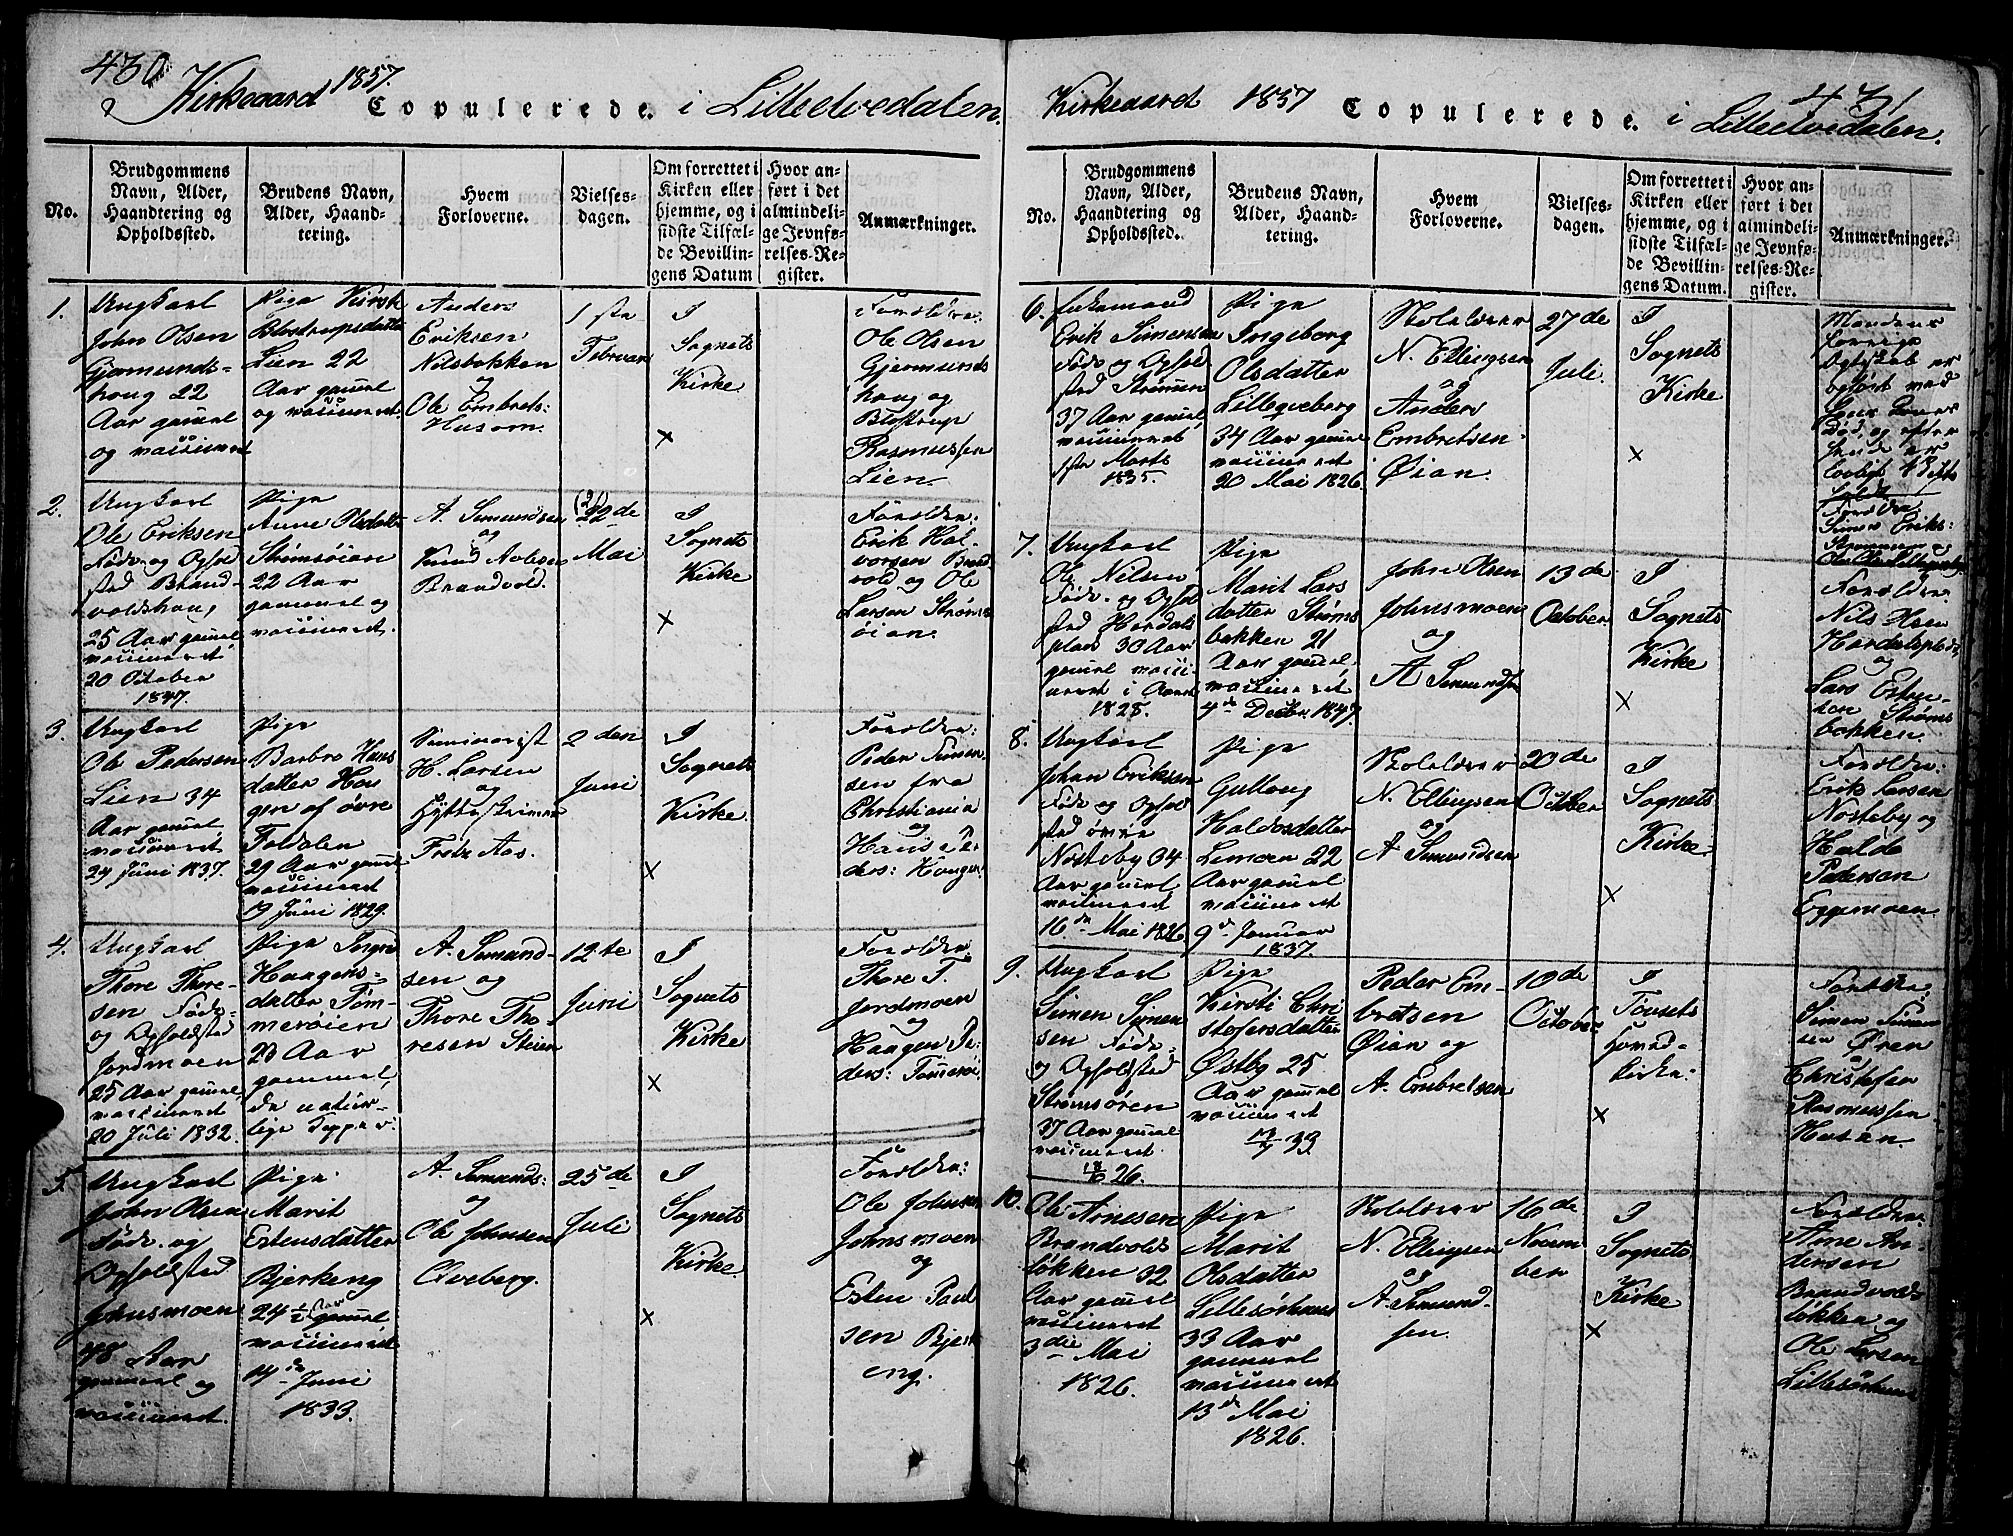 430
Kirkeaard 1857.
Copulerede. i Lilleelvedalen.
No.
Brudgommens
Navn, Alder,
Haandtering og
Opholdssted.
Brudens Navn,
Alder, Haand-
tering.
Hvem
Forloverne.
Vielses-
dagen.
Om forrettet i
Kirken eller
hjemme, og i
sidste Tilfæl-
de Bevillin-
gens Datum
Hvor an-
ført i det
almindeli-
ge Jevnfø-
relses-Re-
gister.
Anmærkninger.
1.
Ungkarl
John Olsen
Gjermunds-
houg 22
Aar gamel
og vaccineret
Pige Kirsti
Blostrupsdatter
Lien 22
Aar gamel
og vaccineret.
Anders
Eriksen
Nilsbekken
og
Ole Embrets:
Husom.
1ste
Februar
I
Sognets
Kirke
x
Forældre:
Ole Olsen
Gjermunds
houg og
Blostrup
Rasmussen
Lien.
2.
Ungkarl
Ole Eriksen
Føde- og Ophol
sted Brand-
voldshoug
25 Aar gamel
vaccineret
20 October
1847.
Pige
Anne Olsdatter
Strømsøien
22 Aar
gammel og
vaccineret.
A. Semundsen
og
Knud
Brandvold.
22de
Mai
I
Sognets
Kirke
x
Forældre:
Erik Hal-
vorsen Brand
vold og Ole
Larsen Strøms
øien.
3.
Ungkarl
Ole Pedersen
Lien 34
Aar gamel
vaccineret
24 Juni 1837.
Pige
Barbro Hans
datter Hou
gen af øvre
Foldalen
29 Aar gamel
vaccineret
19 Juni 1829.
Seminarist
H. Larsen
og
Hytteskriver
Fritz Aas.
2den
Juni
I
Sognets
Kirke.
x
Forældre:
Peder Simen-
sen fra
Christiania
og
Hans Pe-
ders: Hougen
4.
Ungkarl
Thore Thore-
sen Føde-
og Opholdsted
Jordmoen
25 Aar gamel
vaccineret
20 Juli 1832.
Pige Ingri
Haagens-
datter Tøm-
merøien
23 Aar
gammel,
de natur-
lige Kopper.
A. Semund-
sen og
Thore Tho-
resen Steien
12te
Juni
I
Sognets
Kirke
x
Forældre
Thore T.
Jordmoen
og
Haagen Pe-
ders: Tømerøi
5.
Ungkarl
John Olsen
Føde- og
Opholdsted
Johnsmoen
48 Aar
gammel og
vaccineret.
Pige
Marit
Estensdatter
Bjerkeng
24 1/2 Aar gamel
vaccineret
14de Juni
1833.
A. Semunds:
og
Ole Johnsen
Qveberg.
25de
Juli
I
Sognets
Kirke.
x
Forældre:
Ole Johnsen
Johnsmoen
og
Esten Paul
sen Bjerk
eng.
Kirkeaard 1857
Copulerede. i Lilleelvedalen.
431
No.
Brudgommens
Navn, Alder,
Haandtering og
Opholdssted.
Brudens Navn,
Alder, Haand-
tering.
Hvem
Forloverne.
Vielses-
dagen.
Om forrettet i
Kirken eller
hjemme, og i
sidste Tilfæl-
de Bevillin-
gens Datum.
Hvor an-
ført i det
almindeli-
ge Jevnfø-
relses-Re-
gister.
Anmærkninger.
6.
Enkemand
Erik Simensen
Føde og Ophol
sted Strømmen
37 Aar gamel
vaccineret
1ste Marts
1835.
Pige
Ingeborg
Olsdatter
Lilleqveberg
34 Aar gamel
vaccineret
20 Mai 1826.
Skolelærer
N. Ellingsen
og
Anders
Embretsen
Øian.
27de
Juli.
I
Sognets
Kirke
x
Mandens
forrige
Ægteskab er
død, og efter
Forældre:
Simen Eriks:
Strømmen og
7.
Ungkarl
Ole Nilsen
Føde- og Ophol
sted Hardals
plads 30 Aar
gamel vacci-
neret i Aaret
1828.
Pige
Marit Lars
datter Strøms
bekken 21
Aar gamel
vaccineret
4de Decbr. 1847.
John Olsen
Johnsmoen
og
A Semundsen
13de
October
I
Sognets
Kirke
x
Forældre:
Nils
Hardalsplads
og
Lars Esten-
sen Strøms
bekken.
8.
Ungkarl
Johan Eriksen
Føde og Ophol
sted øvre
Nosteby 34
Aar gamel
vaccineret
16de Mai 1826.
Pige
Gullaug
Haldosdatter
Lemoen 22
Aar gamel
vaccineret
9de Januar
1837.
Skolelærer
N. Ellingsen
og
A Semundsen
20de
October
I
Sognets
Kirke.
x
Forældre:
Erik Larsen
Nosteby og
Haldo
Pedersen
Eggemoen
9.
Ungkarl
Simen Simen
sen Føde-
og Opholdsted
Strømsøren
37 Aar gamel
vaccineret
26.
Pige
Kirsti Chri
stofersdatter
Østby 25
Aar gamel
vaccineret
39.
Peder Em-
bretsen
Øian og
A. Embretsen
10de
October
I
Tønsets
Hoved-
kirke.
x
Forældre:
Simen Simen
sen Øren
og
Christofer
Rasmussen
10.
Ole Arnesen
Brandvolds
løkken 32
Aar gamel
vaccineret
3die Mai
1826.
Pige
Marit
Olsdatter
Lillesørhuus
33 Aar
gammel
vaccineret
13de Mai
1826.
Skolelærer
N. Ellingsen
og
A. Semund-
sen.
16de
Novem
ber
I
Sognets
Kirke
x
Forældre:
Arne An-
dersen
Brandvolds
løkken og
Ole Larsen
Lillesørhuus